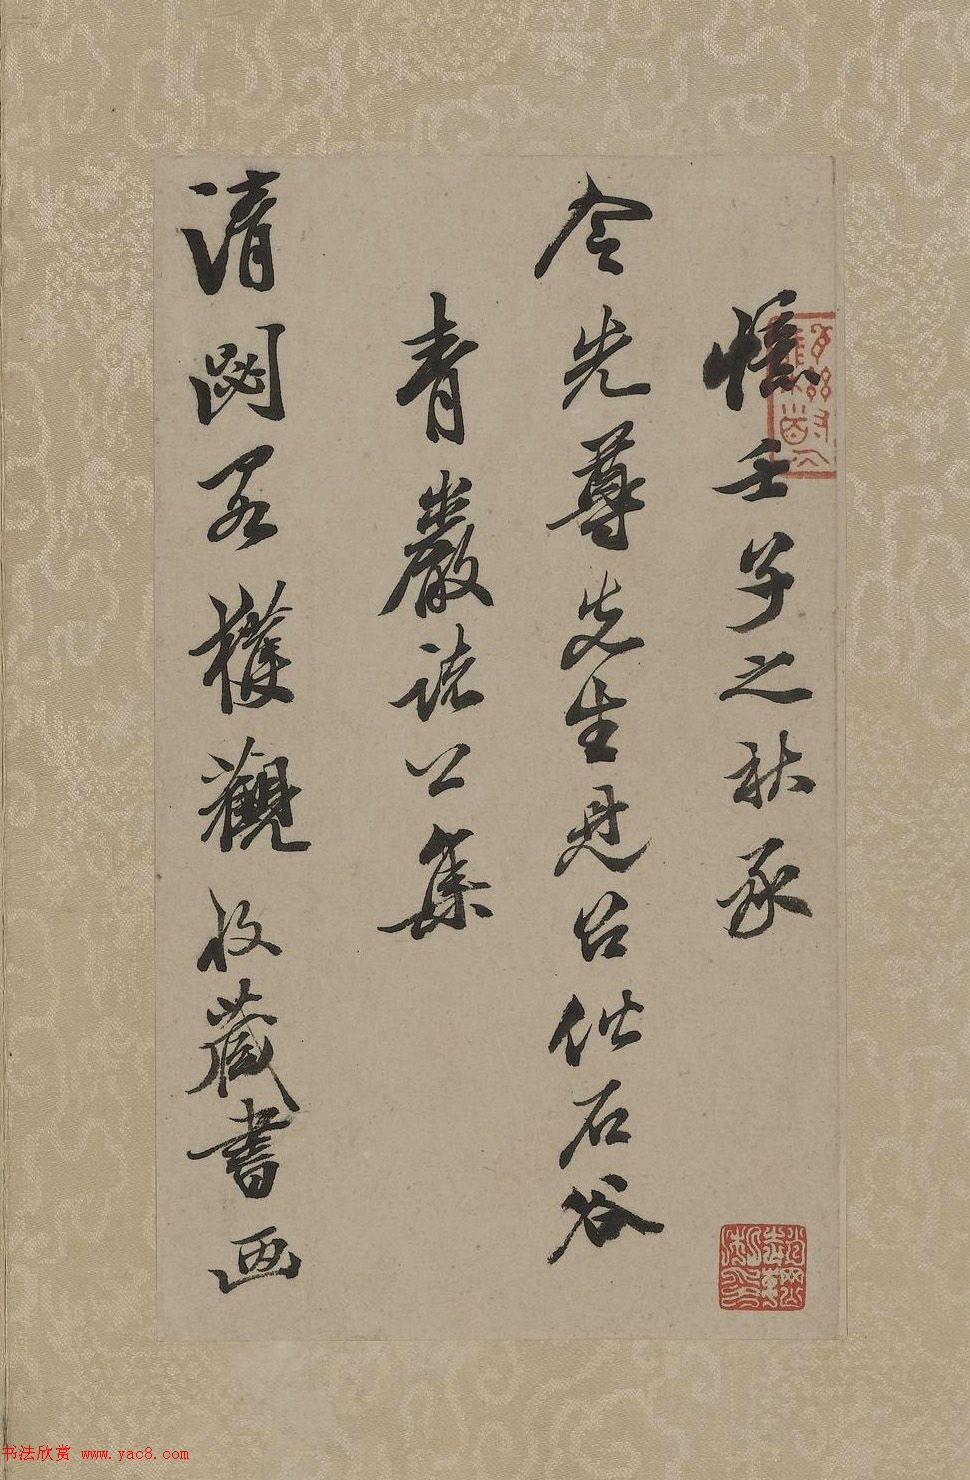 憶壬子之秋承
令先尊先生見召偕石谷
青巖諸公集
清閟異穫觀收藏書画
书法欣赏 www.yac8.com